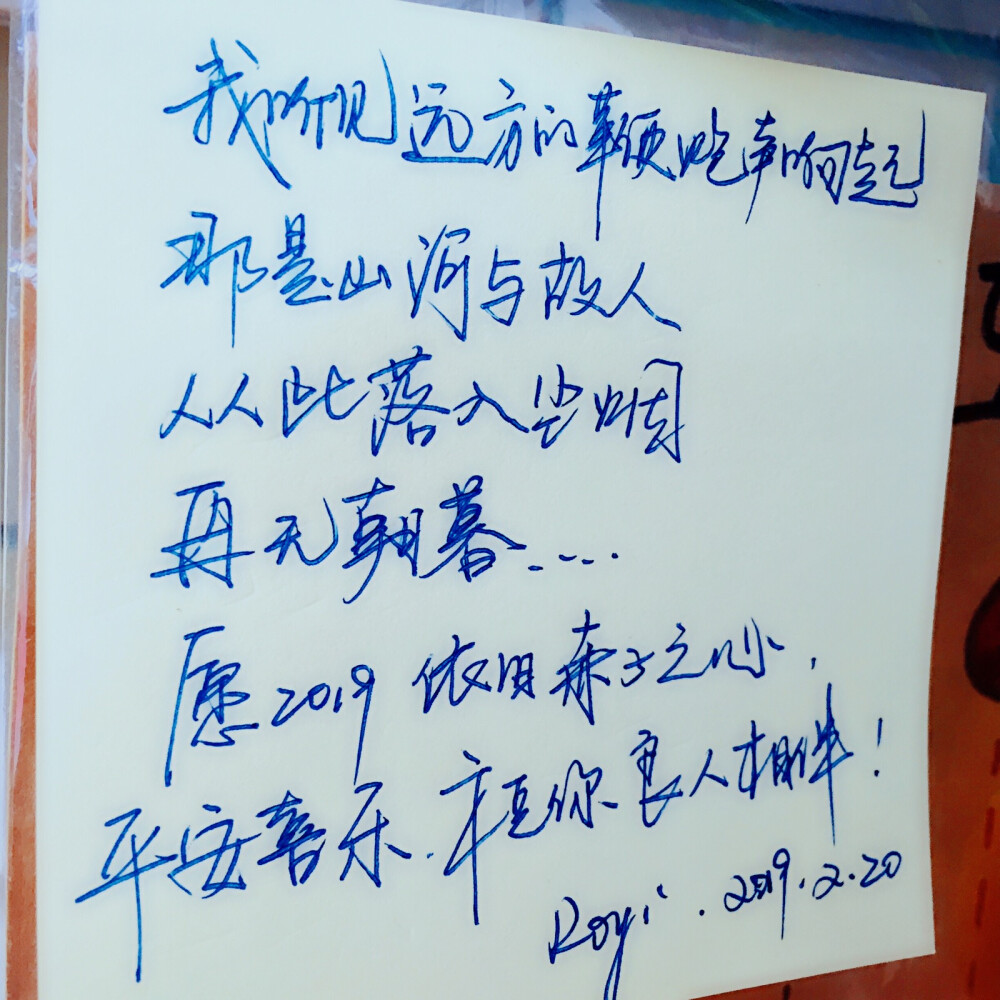 我听见远方的鞭炮声响起
那是山河与故人
从此落入尘烟
再无朝暮....
愿2019 依旧赤子之心,
平安喜乐. 你良人相伴!
Royi . 2019.2.20